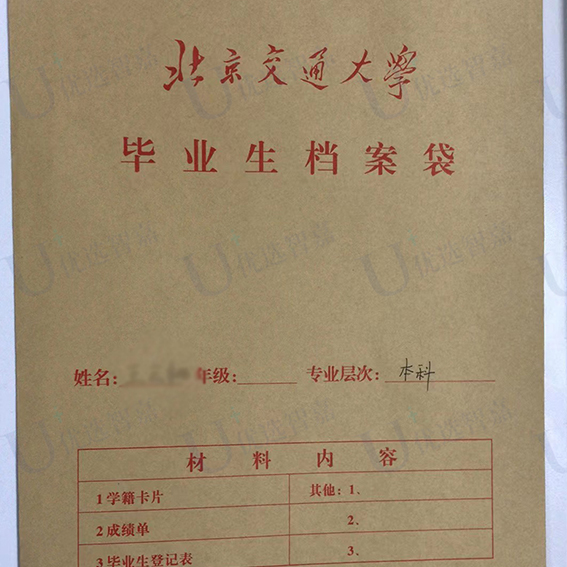 北京交通大學
毕业生档案袋
姓名: 年级: 专业层次: 本科
材料内容
1 学籍卡片 其他: 1、
2 成绩单 2、
3 毕业生登记表 3、